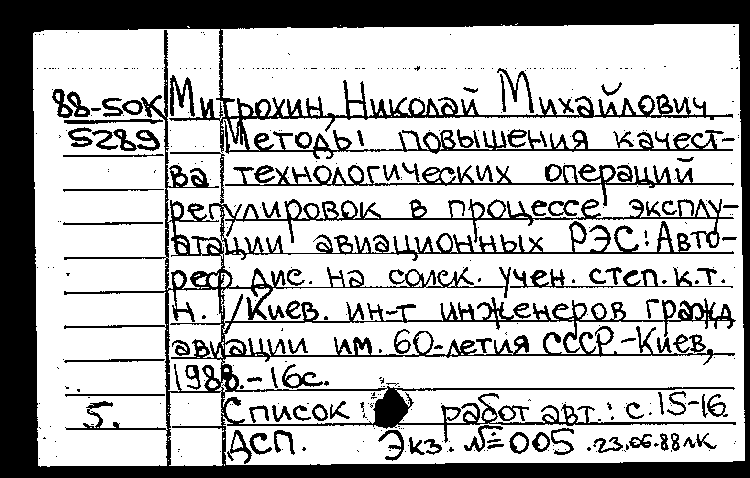 88-50К Митрохин, Николай Михайлович.
5289 Методы повышения качест-
ва технологических операций
регулировок в процессе эксплу-
атации авиационных РЭС: Авто-
реф. дис. на соиск. учен. степ. к.т.
н. /Киев. ин-т инженеров гражд
авиации им. 60-летия СССР.-Киев,
1988.-16с.
5. Список работ авт.: с.15-16
ДСП. Экз. №005 .23.06.88лк